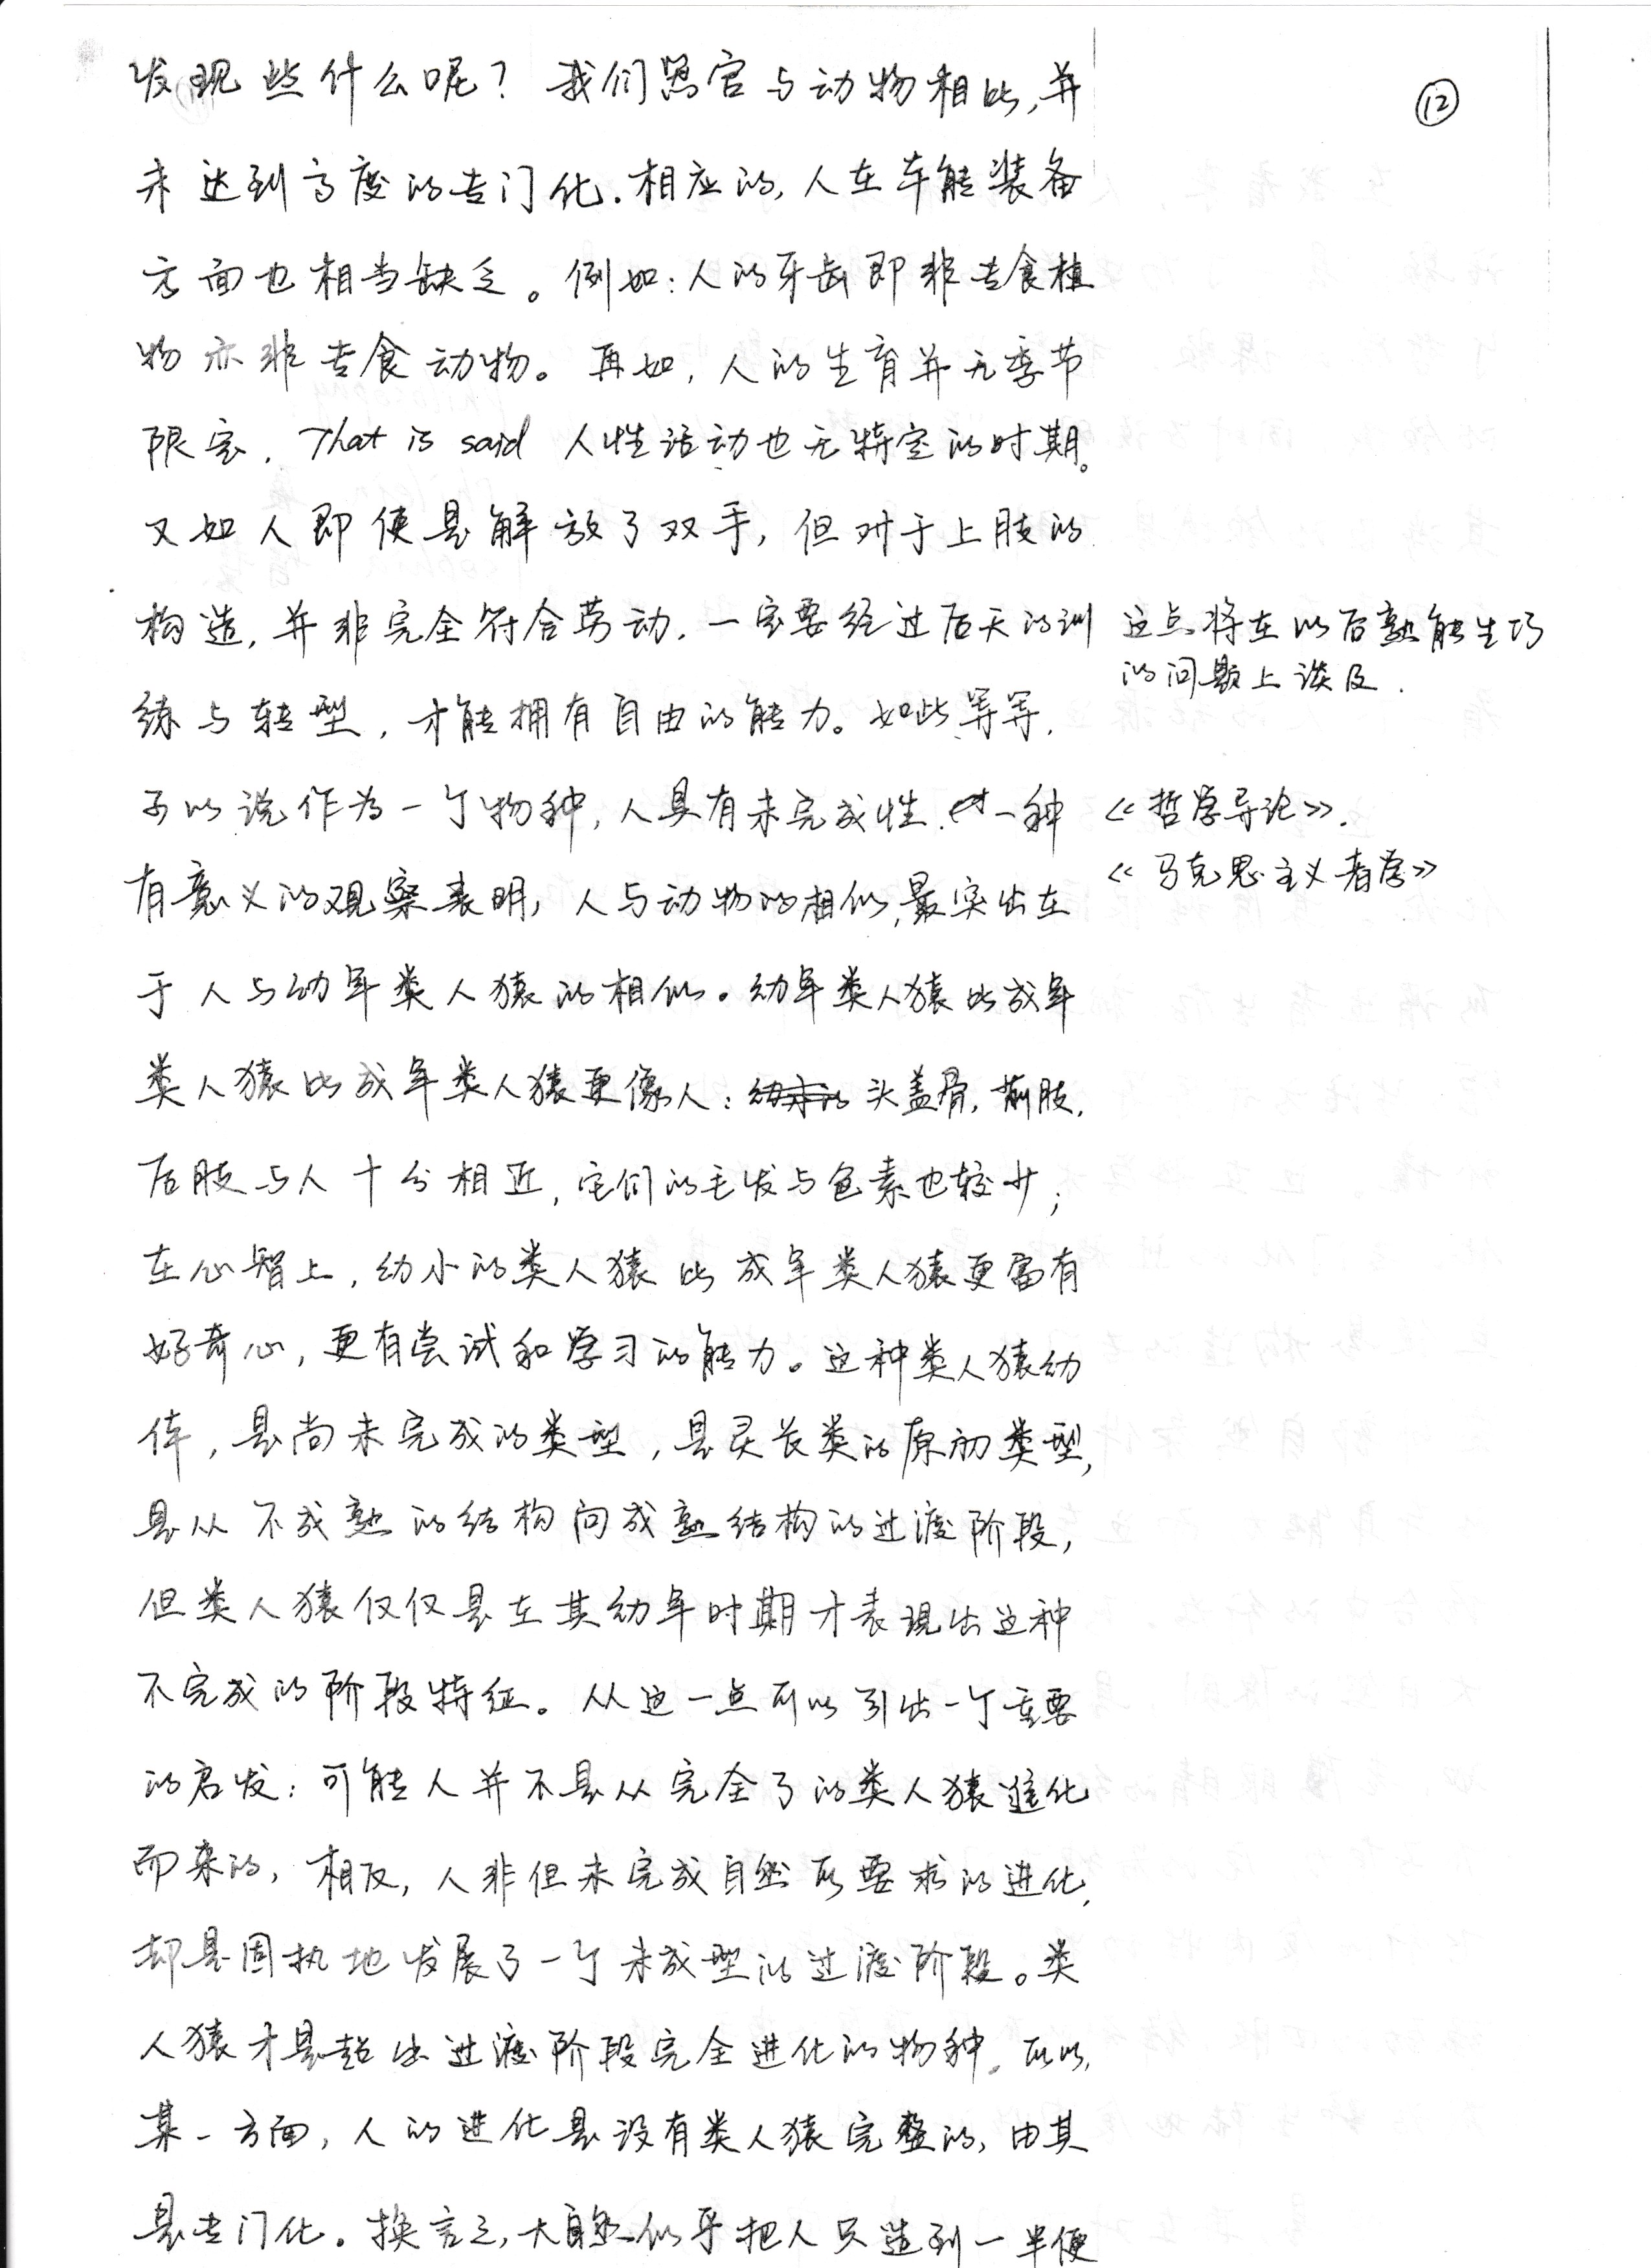 发现些什么呢？我们器官与动物相比,并
⑫
未达到高度的专门化.相应的,人在本能装备
方面也相当缺乏。例如:人的牙齿即非专食植
物亦非专食动物。再如,人的生育并无季节
限定. That is said 人性活动也无特定的时期。
又如人即使是解放了双手,但对于上肢的
构造,并非完全符合劳动.一定要经过后天的训
这点将在以后熟能生巧
的问题上谈及.
练与转型,才能拥有自由的能力。如此等等.
可以说作为一个物种,人具有未完成性.一种
《哲学导论》.
《马克思主义哲学》
有意义的观察表明,人与动物的相似,最突出在
于人与幼年类人猿的相似。幼年类人猿比成年
类人猿比成年类人猿更像人:头盖骨,前肢,
后肢与人十分相近,它们的毛发与色素也较少;
在心智上,幼小的类人猿比成年类人猿更富有
好奇心,更有尝试和学习的能力。这种类人猿幼
体,是尚未完成的类型,是灵长类的原初类型,
是从不成熟的结构向成熟结构的过渡阶段,
但类人猿仅仅是在其幼年时期才表现出这种
不完成的阶段特征。从这一点可以引出一个重要
的启发:可能人并不是从完全了的类人猿进化
而来的,相反,人非但未完成自然所要求的进化,
却是固执地发展了一个未成型的过渡阶段。类
人猿才是超出过渡阶段完全进化的物种。所以,
某一方面,人的进化是没有类人猿完整的,由其
是专门化。换言之,大自然似乎把人只造到一半便